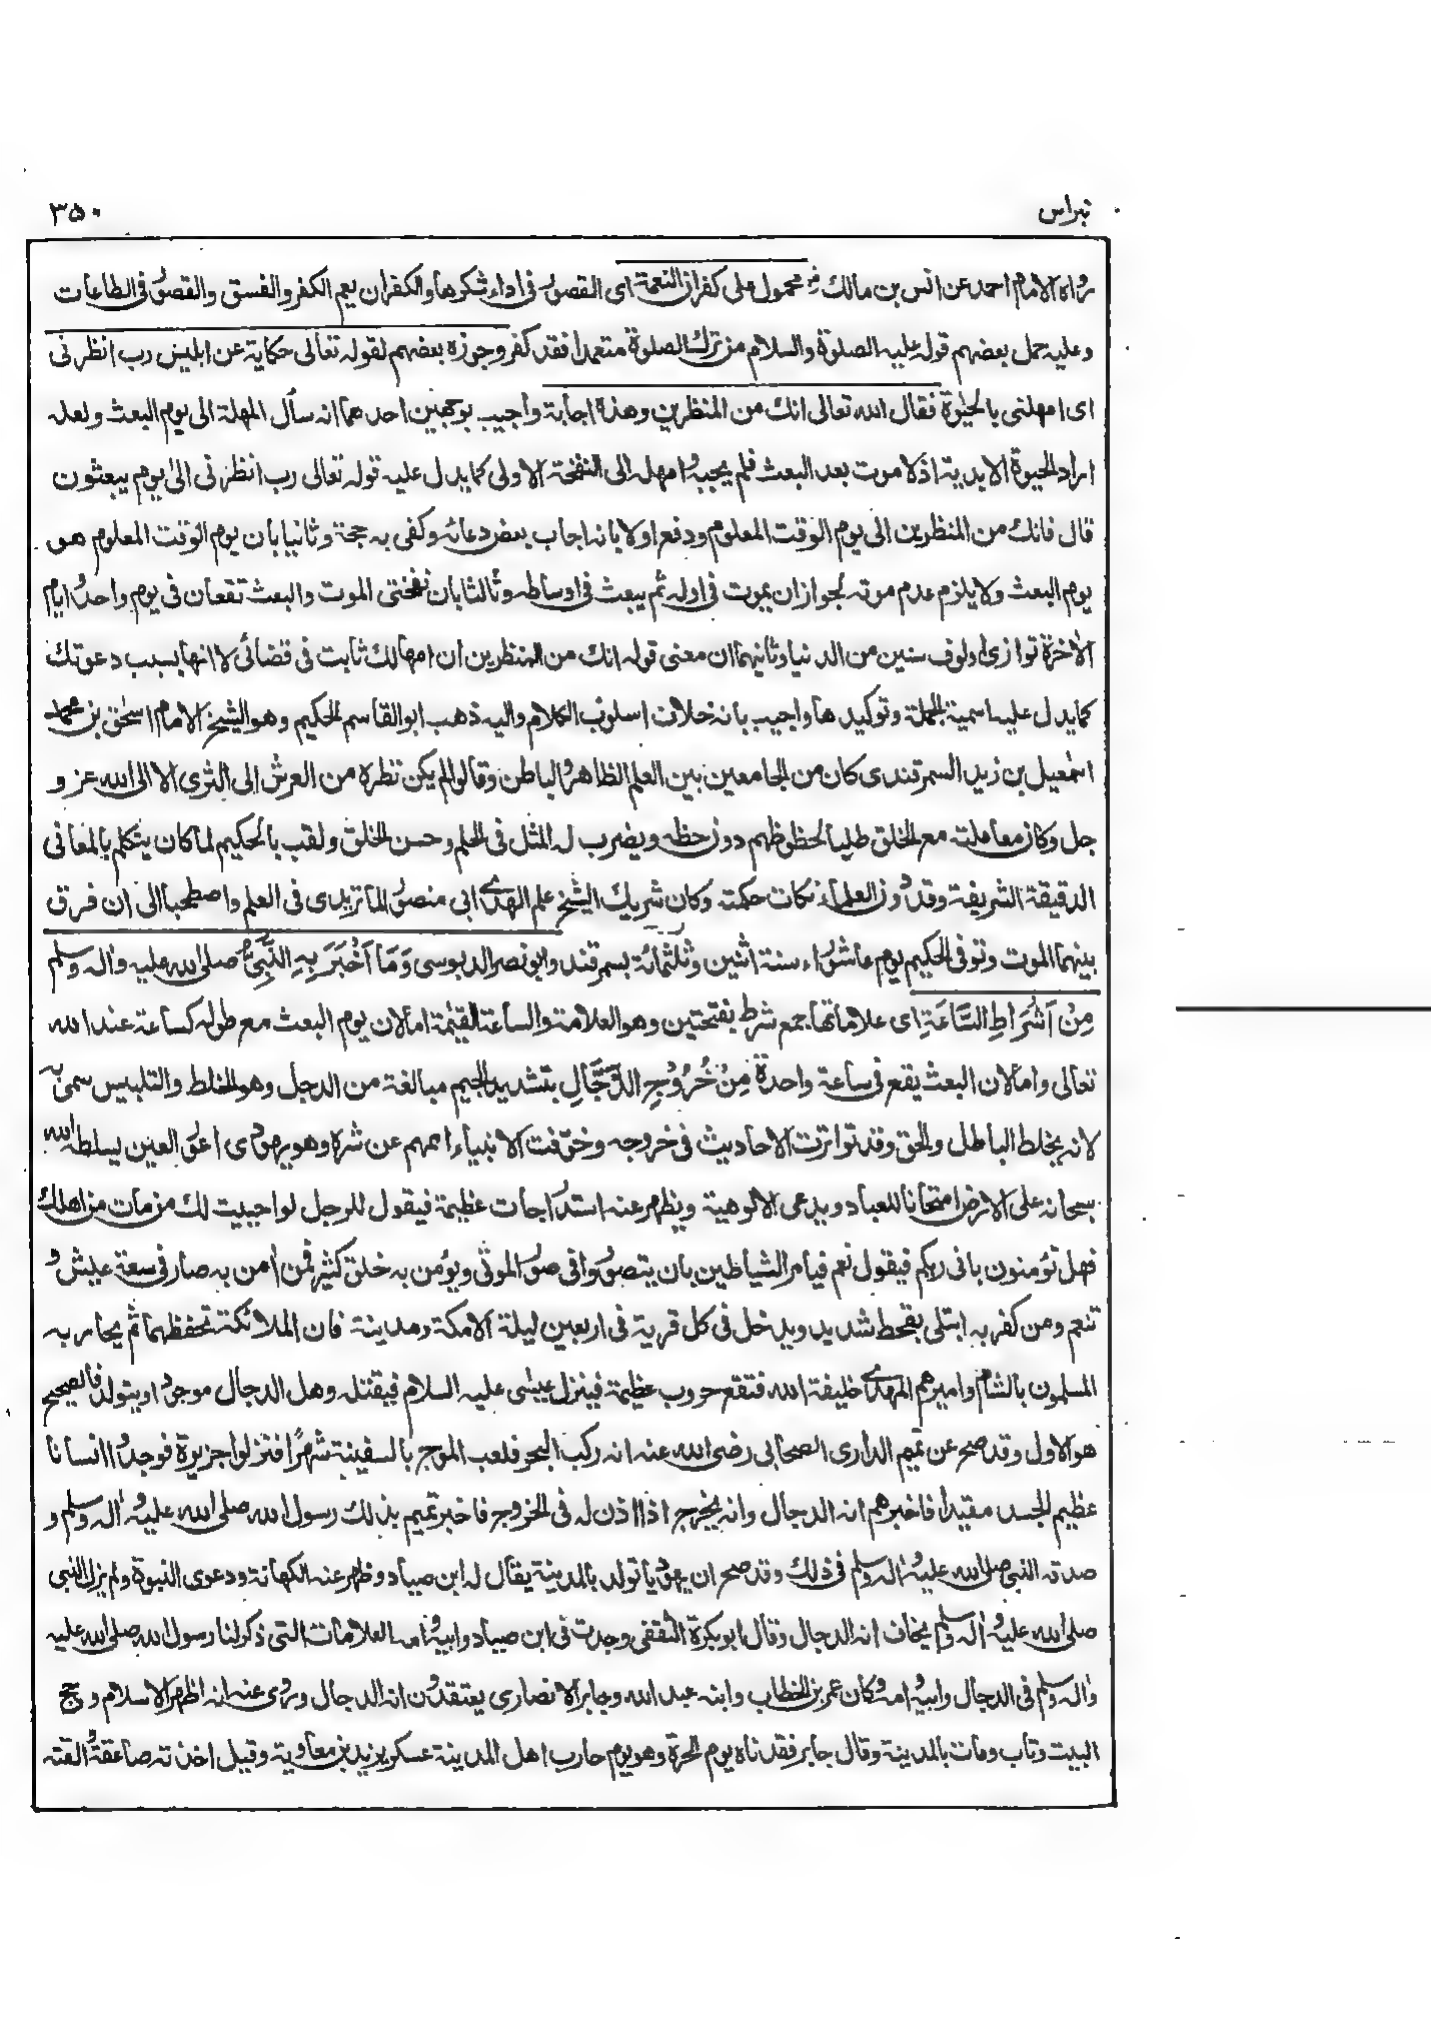 نبراس
۳۵۰
رواه الامام احمد عن انس بن مالك محمول على كفران النعمة اى القصور فى اداء شكرها والكفران يعم الكفر والفسق والقصور فى الطاعات
وعليه حمل بعضهم قوله عليه الصلوة والسلام من ترك الصلوة متعمدا فقد كفر وجوزه بعضهم لقوله تعالى حكاية عن ابليس رب انظرنى
اى امهلنى بالحيوة فقال الله تعالى انك من المنظرين وهذه اجابة واجيب بوجهين احدهما انه سأل المهلة الى يوم البعث ولعله
اراد الحيوة الابدية اذ لا موت بعد البعث فلم يجبه وامهله الى النفخة الاولى كما يدل عليه قوله تعالى رب انظرنى الى يوم يبعثون
قال فانك من المنظرين الى يوم الوقت المعلوم ودفع اولا بانه اجاب بعض دعائه وكفى به حجة وثانيا بان يوم الوقت المعلوم هو
يوم البعث ولا يلزم عدم موته لجواز ان يموت فى اوله ثم يبعث فى اوساطه وثالثا بان نفختى الموت والبعث تقعان فى يوم واحد وايام
الآخرة توازى الوف سنين من الدنيا وثانيهما ان معنى قوله انك من المنظرين ان امهالك ثابت فى قضائى لا انها بسبب دعوتك
كما يدل عليه اسمية الجملة وتوكيدها واجيب بانه خلاف اسلوب الكلام واليه ذهب ابو القاسم الحكيم وهو الشيخ الامام اسحق بن محمد
اسمعيل بن زيد السمرقندى كان من الجامعين بين العلم الظاهر والباطن وقالوا لم يكن نظره من العرش الى الثرى الا الى الله عز و
جل وكان معاملته مع الخلق طلبا لحظوظهم دون حظه ويضرب له المثل فى الحلم وحسن الخلق ولقب بالحكيم لما كان يتكلم بالمعانى
الدقيقة الشريفة وقد دون العلماء نكات حكمته وكان شريك الشيخ علم الهدى ابى منصور الماتريدى فى العلم واصطحبا الى ان فرق
بينهما الموت وتوفى الحكيم يوم عاشوراء سنة اثنين وثلثمائة بسمرقند وابو نصر الدبوسى وَمَا اَخْبَرَ بِهِ النَّبِىُّ صلى الله عليه واله وسلم
مِنْ اَشْرَاطِ السَّاعَةِ اى علاماتها جمع شرط بفتحتين وهو العلامة والساعة القيٰمة اما لان يوم البعث مع طوله كساعة عند الله
تعالى واما لان البعث يقع فى ساعة واحدة مِنْ خُرُوْجِ الدَّجَّالِ بتشديد الجيم مبالغة من الدجل وهو الخلط والتلبيس سمى به
لانه يخلط الباطل والحق وقد تواترت الاحاديث فى خروجه وخوّفت الانبياء اممهم عن شره وهو يهودى اعور العين يسلطه الله
سبحانه على الارض امتحانا للعباد ويدعى الالوهية ويظهر عنه استدراجات عظيمة فيقول للرجل لو احييت لك من مات من اهلك
فهل تؤمنون بانى ربكم فيقول نعم فيامر الشياطين بان يتصوروا فى صور الموتى ويؤمن به خلق كثير فمن اٰمن به صار فى سعة عيش و
تنعم ومن كفر به ابتلى بقحط شديد ويدخل فى كل قرية فى اربعين ليلة الا مكة ومدينة فان الملائكة تحفظهما ثم يحاربه
المسلمون بالشام واميرهم المهدى خليفة الله فتقع حروب عظيمة فينزل عيسٰى عليه السلام فيقتله وهل الدجال موجود او يتولد فالصحيح
هو الاول وقد صح عن تميم الدارى الصحابى رضى الله عنه انه ركب البحر فلعب الموج بالسفينة شهرًا فنزلوا جزيرة فوجدوا انسانا
عظيم الجسد مقيدا فاخبرهم انه الدجال وانه يخرج اذا اذن له فى الخروج فاخبر تميم بذلك رسول الله صلى الله عليه واٰله وسلم و
صدقه النبى صلى الله عليه واٰله وسلم فى ذلك وقد صح ان يهوديا تولد بالمدينة يقال له ابن صياد وظهر عنه الكهانة ودعوى النبوة ولم يزل النبى
صلى الله عليه واٰله وسلم يخاف انه الدجال وقال ابو بكرة الثقفى وجدت فى ابن صياد وابيه وامه العلامات التى ذكر لنا رسول الله صلى الله عليه
واٰله وسلم فى الدجال وابيه وامه وكان عمر بن الخطاب وابنه عبد الله وجابر الانصارى يعتقدون انه الدجال وروى عنه انه اظهر الاسلام وحج
البيت وتاب ومات بالمدينة وقال جابر فقدناه يوم الحرة وهو يوم حارب اهل المدينة عسكر يزيد بن معاوية وقيل اخذته صاعقة والقته